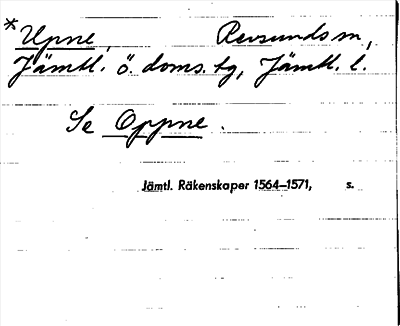 * Upne, Revsunds sn,
Jämtl. ö. doms. tg, Jämtl. l.
Se Oppne.
Jämtl. Räkenskaper 1564–1571, s.